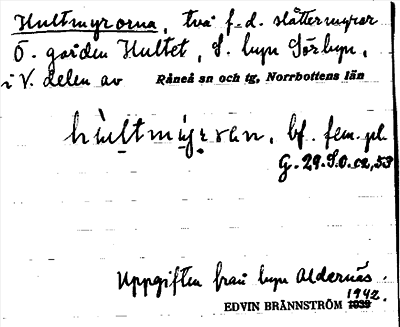 Hultmyrorna, två f.d. slåttermyror
Ö. gården Hultet, S. byn Sörbyn,
i V. delen av Råneå sn och tg, Norrbottens län
hùltmyrran, bf. fem. pl.
G. 29.S.O.
Uppgiften från byn Aldernäs.
EDVIN BRÄNNSTRÖM 1942.